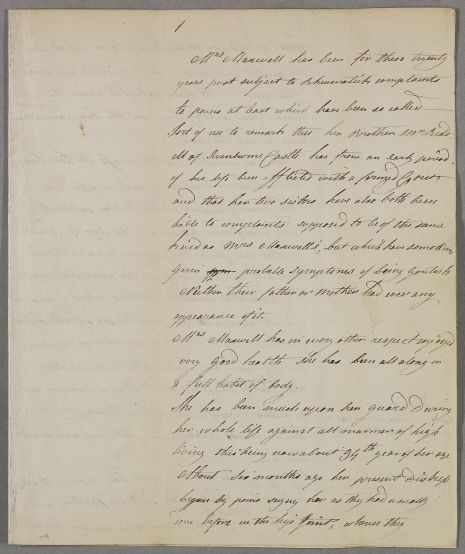 1
Mrs Maxwell has been for these twenty
years past subject to Rheumatick complaints
to pains at least which have been so called
sort of use to remark that her Brother Mr Ridd
ell of Castle has from an early period
of his life been afflicted with a formed Gout
and that her two sisters have also both been
liable to complaints supposed to be of the same
kind as Mrs Maxwells, but which have sometimes
given probable symptoms of being Goutish
Neither their father or Mother had ever any
appearance of it.
Mrs Maxwell has in every other respect enjoyed
very good health She has been all along in
a full habit of body.
She has been much upon her guard During
her whole life against all manner of high
living this being now about 54th year of her age
About six months ago her present Distress
began by pains seizing her as they had usually
done before in the hip Joint, whence they